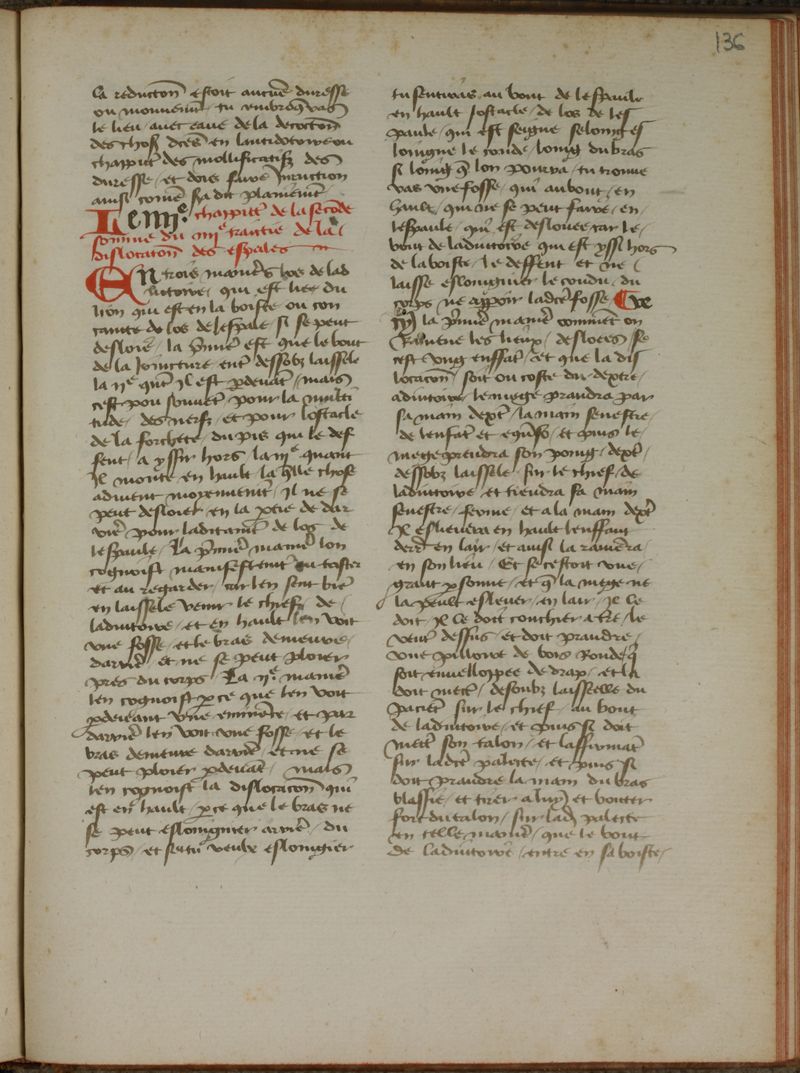 136
la reducton estoit aucune duresse
ou mouvemt tu
le lieu avec eaue de la decocton
des choses dcēs en lantidotoire ou
chappitre des mollificatifz des
duresse et dois faire
ainsi comē sa dit plainemt
Le iiij.e chappitre de la secōde
somme du iiij.e traictie de la
dislocaton des espales
En trois manieres los de lad
iutoire qui est lie du
lien qui est en la boiste ou con
cauite de los de lespale si se peut
desloer la p̄miē est que le bout
de la joincture ent̄ dessobz laisselle
la ije quāt il est p devāt mais
cest pou souvent pour la multi
tude des nerfz et pour lostacle
de la forchete du pis qui le def
fent a yssir hors la iije quant
il monte en hault laq̄lle chose
advient moyennemt il ne se
peut desloer en la ptie de dar
rie pour de los de
lespaule La p̄miē maniē lon
cognoist manifestemt au taster
et au regarder car len sent biē
en laisselle venir le chief de
ladiutoire et en hault len voit
une fosse et le bras demeure
darrie et ne se peut ploier
pres du corps La ije maniē
len cognoist p ce que len voit
p devant une eminēce et par
darrie len voit une fosse et le
bras demeure darrie et ne se
peut ploier p devāt mais
len cognoist la dislocacon qui
est en hault p ce que le bras ne
se peut eslongnier arrie du
corps et se tu veulx eslongier
tu sentiras au bout de lespaule
en hault lostacle de los de les
paule qui est
longue le coude long du bras
si long q̄ lon pourra tu trouve
ras une fosse qui au bout en
hault qui ne se peut faire en
lespaule qui est deslouee car le
bout de ladiutoire qui est yssi hors
de la boiste le deffent et ne
laisse eslongnier le coudu du
corps ne appoir ladcē fosse Ce
la p̄miē maniē commēt on
ramene les lieux desloees se
cest ung enffāt et que la dis
locacon soit ou coste du dextre
adiutoire le mege prandra par
sa main dext̄ la main senestre
de lenfāt et et puis le
mege prendra son poing dext̄
dessobz laisselle sur le chief de
ladiutoire et tiendra sa main
senestre ferme et a la main dext̄
il eslievera en hault lenffant
en lair et ainsi la ramēra
en son lieu Et se cestoit une
grant psonne et q̄ la mege ne
la peult eslever en lair il le
doit il le doit couchier a t̄re le
vent̄ dessus et doit prandre
une pillorte de bois ronde q̄
soit envellopee de drap et la
doit met̄ dessoubz laisselle du
paciēt sur le chief au bout
de ladiutoire et puis si doit
met̄ son talon et laffirmāt
sur ladcē palote et puis si
doit prandre la main du bras
blassie et tirer a luy et bouter
fort du talon sur lad palette
en telle maniē que le bout
de ladiutoire entre en sa boiste